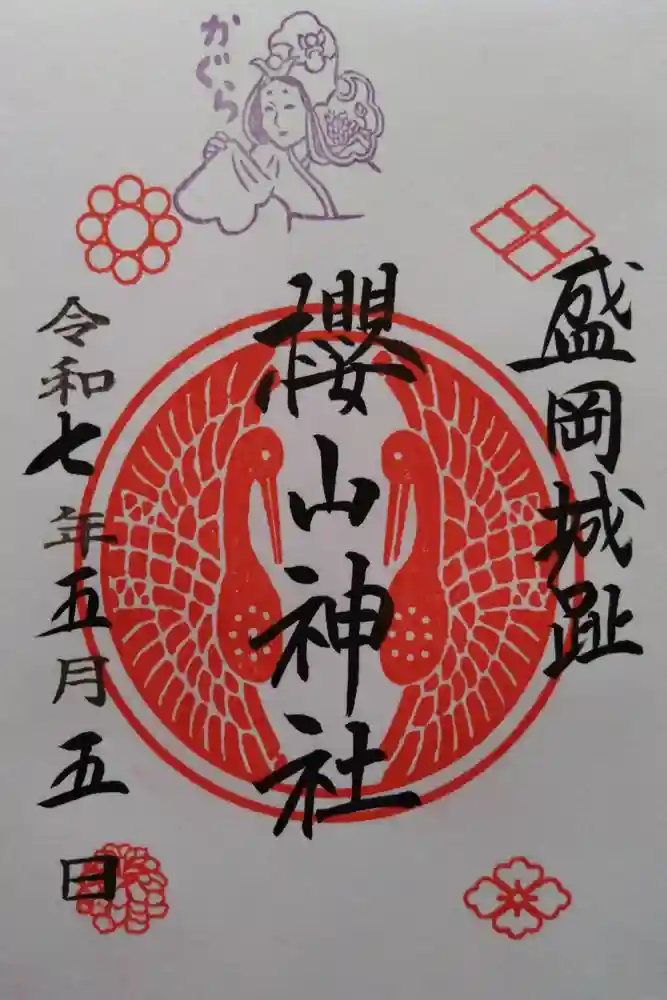 かぐら
盛岡城趾
櫻山神社
令和七年五月五日